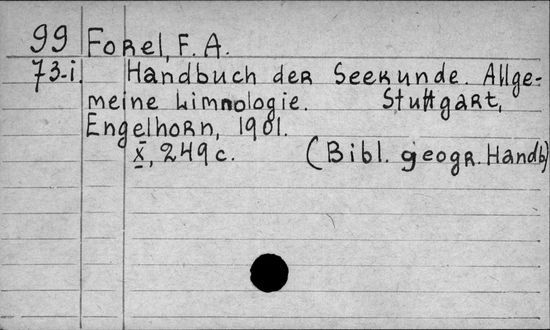 99 Forel, F. A.
73-i. Handbuch der Seekunde. Allge-
meine Limnologie. Stuttgart,
Engelhorn, 1901.
X, 249 c. (Bibl. geogr. Handb)